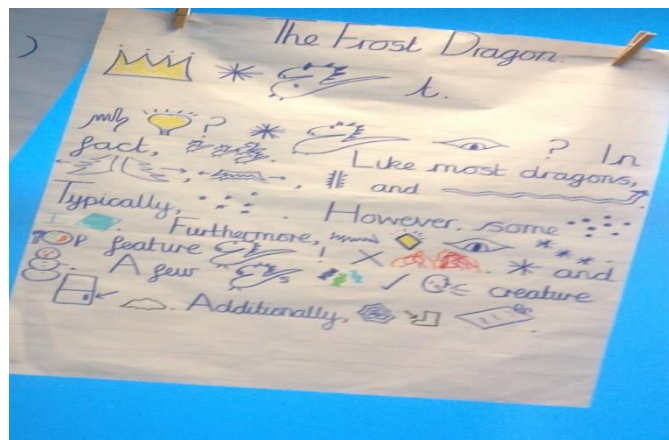 The Frost Dragon.
t.
? ? In
fact, Like most dragons,
, , and
Typically, . However, some
. Furthermore,
TOP feature ! and
. A few creature
. Additionally,